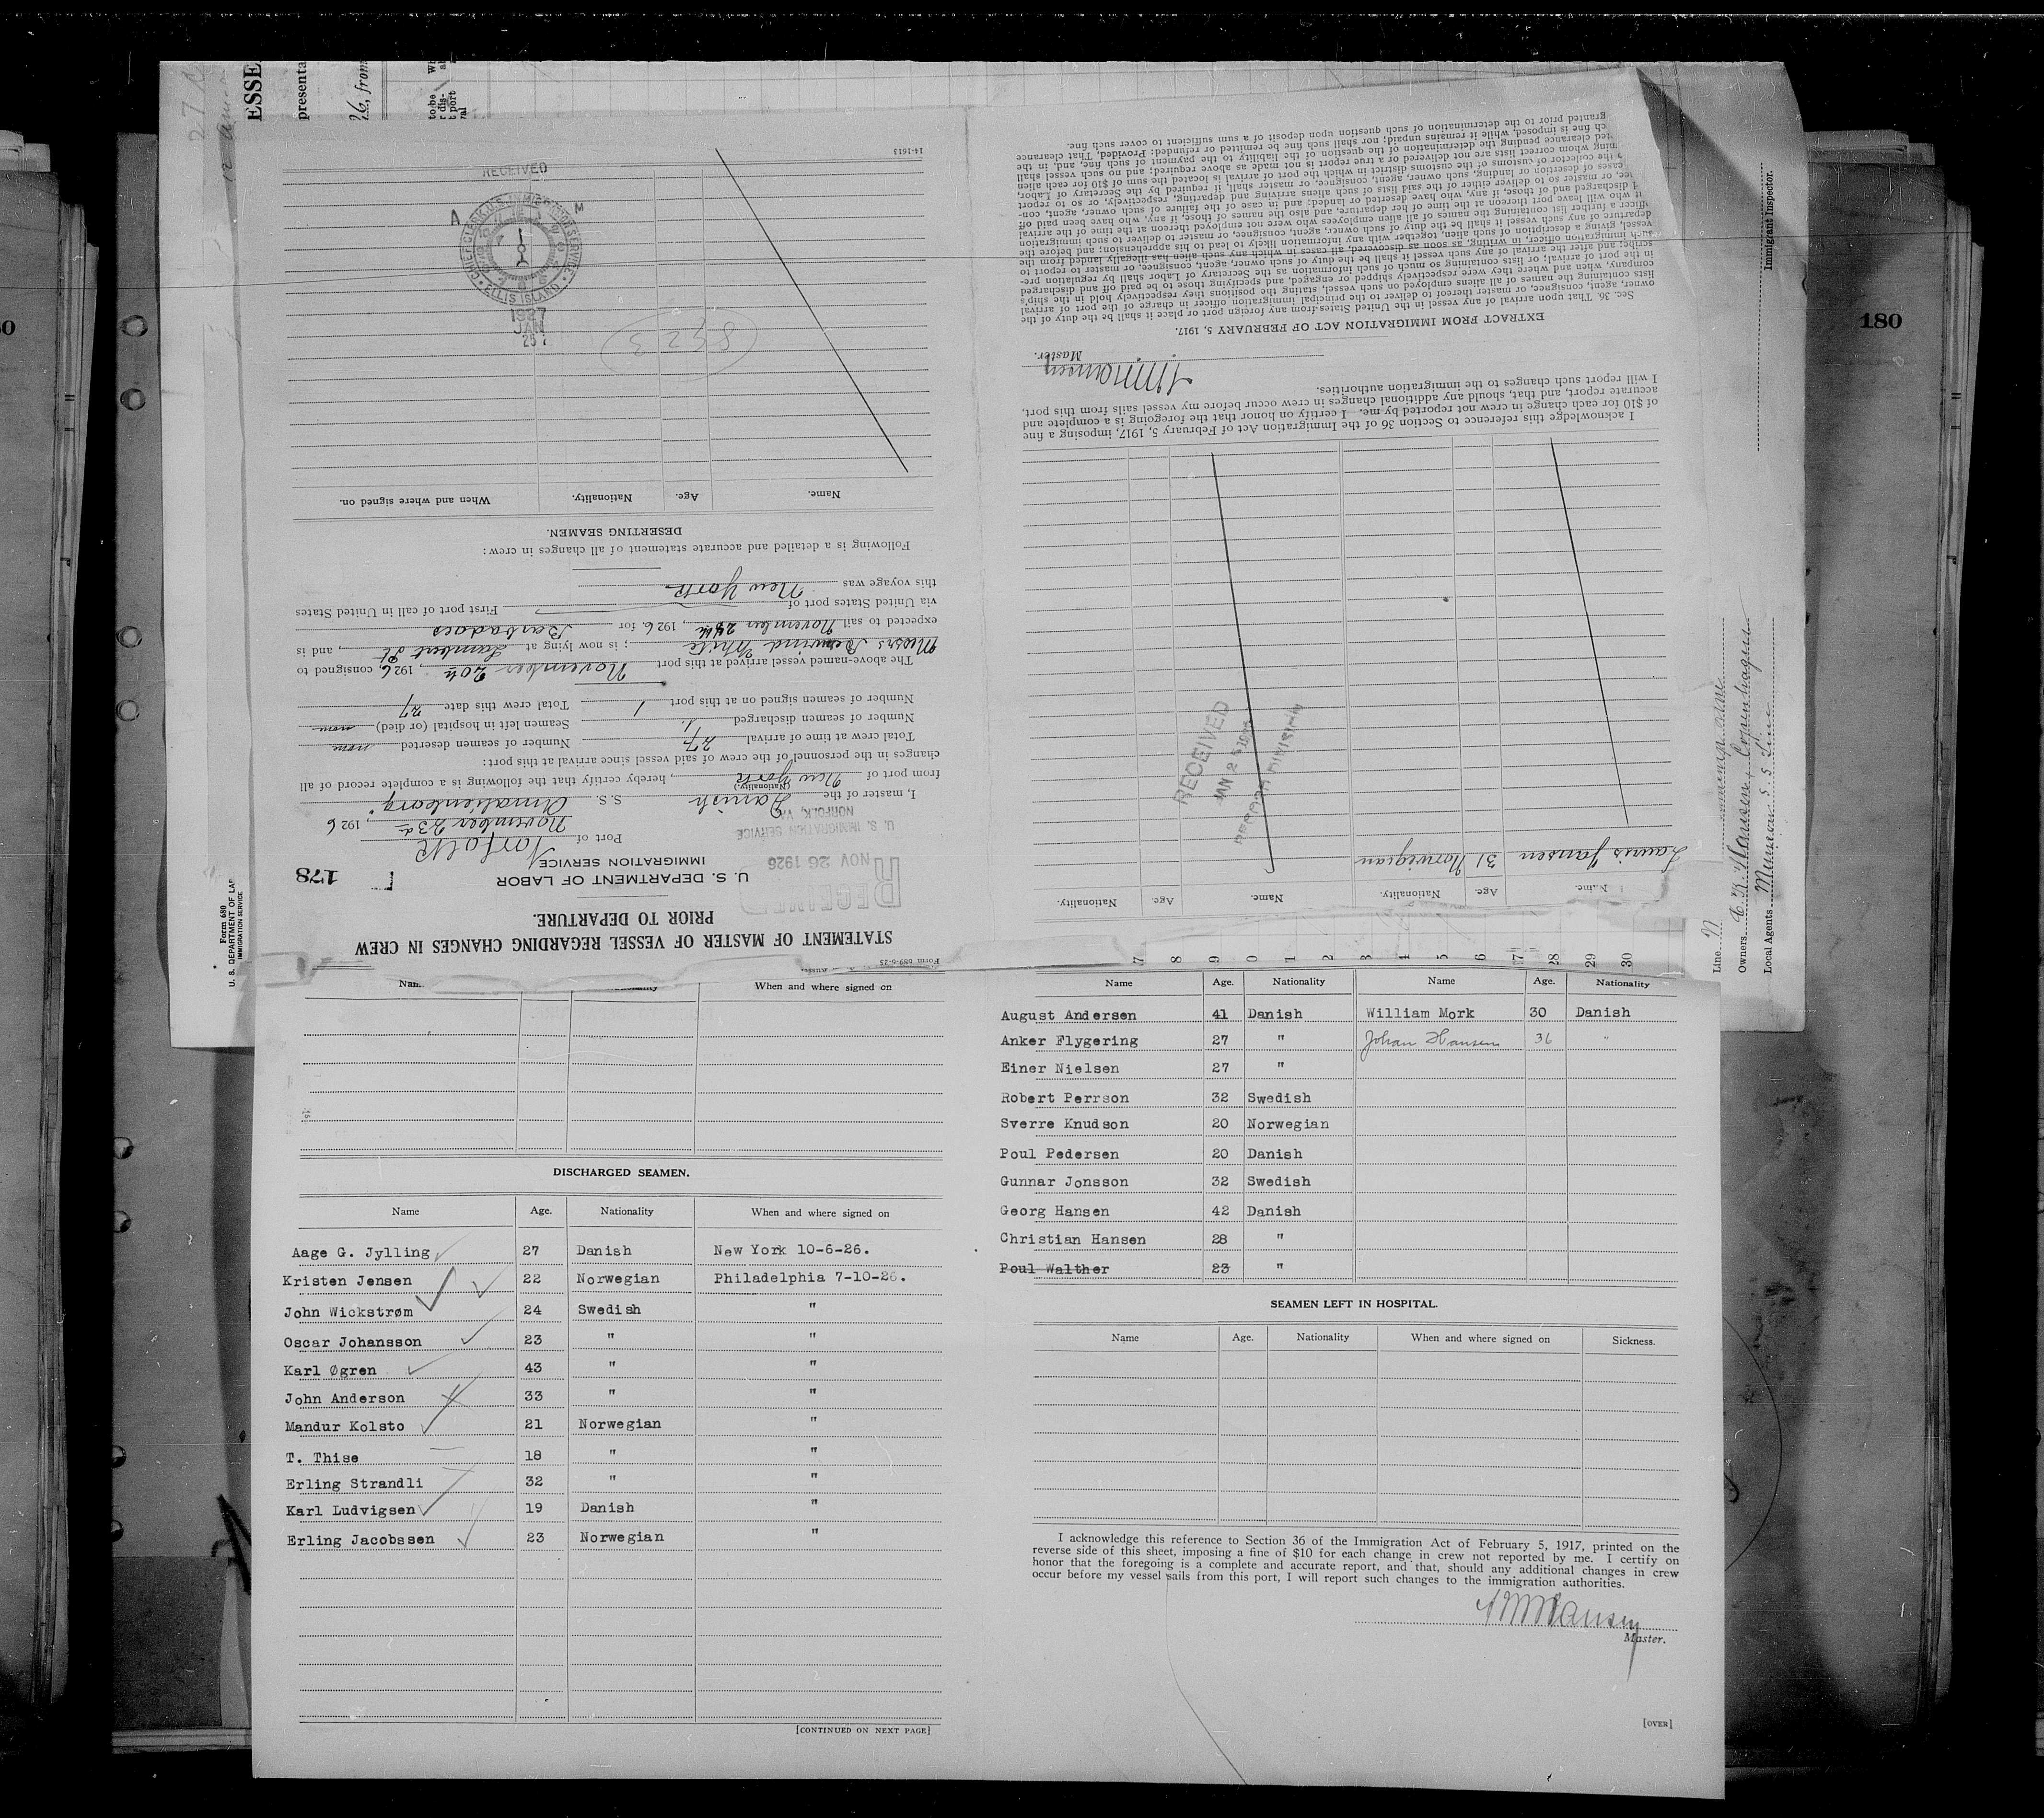 180
Name Age. Nationality When and where signed on
DISCHARGED SEAMEN.
Name Age. Nationality When and where signed on
Aage G. Jylling 27 Danish New York 10-6-26.
Kristen Jensen 22 Norwegian Philadelphia 7-10-26.
John Wickstrøm 24 Swedish "
Oscar Johansson 23 " "
Karl Øgren 43 " "
John Anderson 33 " "
Mandur Kolsto 21 Norwegian "
T. Thise 18 " "
Erling Strandli 32 " "
Karl Ludvigsen 19 Danish "
Erling Jacobssen 23 Norwegian "
[CONTINUED ON NEXT PAGE]
Name Age. Nationality Name Age. Nationality
August Andersen 41 Danish William Mork 30 Danish
Anker Flygering 27 " Johan Hansen 36 "
Einer Nielsen 27 "
Robert Perrson 32 Swedish
Sverre Knudson 20 Norwegian
Poul Pedersen 20 Danish
Gunnar Jonsson 32 Swedish
Georg Hansen 42 Danish
Christian Hansen 28 "
Poul Walther 23 "
SEAMEN LEFT IN HOSPITAL.
Name Age. Nationality When and where signed on Sickness.
I acknowledge this reference to Section 36 of the Immigration Act of February 5, 1917, printed on the
reverse side of this sheet, imposing a fine of $10 for each change in crew not reported by me. I certify on
honor that the foregoing is a complete and accurate report, and that, should any additional changes in crew
occur before my vessel sails from this port, I will report such changes to the immigration authorities.
Master.
[OVER]
Form 689
STATEMENT OF MASTER OF VESSEL REGARDING CHANGES IN CREW
PRIOR TO DEPARTURE.
U. S. DEPARTMENT OF LABOR
IMMIGRATION SERVICE
178
RECEIVED
NOV 26 1926
U. S. IMMIGRATION SERVICE
NORFOLK, VA.
Port of Norfolk
November 23d, 1926
I, master of the Danish S.S. Amalienborg
(Nationality.)
from port of New York, hereby certify that the following is a complete record of all
changes in the personnel of the crew of said vessel since arrival at this port:
Total crew at time of arrival 27 Number of seamen deserted none
Number of seamen discharged 1 Seamen left in hospital (or died) none
Number of seamen signed on at this port 1 Total crew this date 27
The above-named vessel arrived at this port November 20th, 1926, consigned to
Messrs Berwind White; is now lying at Lambert Pt, and is
expected to sail November 24th, 1926 for Barbados
via United States port of First port of call in United States
this voyage was New York
Following is a detailed and accurate statement of all changes in crew:
DESERTING SEAMEN.
Name. Age. Nationality. When and where signed on.
8423
RECEIVED
A M
CHIEF CLERK U. S. IMMIGRATION SERVICE
ELLIS ISLAND
1927
JAN
25
14-1613
Name. Age. Nationality. Name. Age. Nationality.
Lauris Jansen 31 Norwegian
RECEIVED
JAN 25
RECORD DIVISION
I acknowledge this reference to Section 36 of the Immigration Act of February 5, 1917, imposing a fine
of $10 for each change in crew not reported by me. I certify on honor that the foregoing is a complete and
accurate report, and that, should any additional changes in crew occur before my vessel sails from this port,
I will report such changes to the immigration authorities.
Master.
EXTRACT FROM IMMIGRATION ACT OF FEBRUARY 5, 1917.
Sec. 36. That upon arrival of any vessel in the United States from any foreign port or place it shall be the duty of the
owner, agent, consignee, or master thereof to deliver to the principal immigration officer in charge of the port of arrival
lists containing the names of all aliens employed on such vessel, stating the positions they respectively hold in the ship's
company, when and where they were respectively shipped or engaged, and specifying those to be paid off and discharged
in the port of arrival; or lists containing so much of such information as the Secretary of Labor shall by regulation pre-
scribe; and after the arrival of any such vessel it shall be the duty of such owner, agent, consignee, or master to report to
such immigration officer, in writing, as soon as discovered, all cases in which any such alien has illegally landed from the
vessel, giving a description of such alien, together with any information likely to lead to his apprehension; and before the
departure of any such vessel it shall be the duty of such owner, agent, consignee, or master to deliver to such immigration
officer a further list containing the names of all alien employees who were not employed thereon at the time of the arrival
it who will leave port thereon at the time of her departure, and also the names of those, if any, who have been paid off
discharged and of those, if any, who have deserted or landed; and in case of the failure of such owner, agent, con-
or master so to deliver either of the said lists of such aliens arriving and departing, respectively, or so to report
cases of desertion or landing, such owner, agent, consignee, or master shall, if required by the Secretary of Labor,
the collector of customs of the customs district in which the port of arrival is located the sum of $10 for each alien
whom correct lists are not delivered or a true report is not made as above required; and no such vessel shall
clearance pending the determination of the question of the liability to the payment of such fine, and, in the
fine is imposed, while it remains unpaid; nor shall such fine be remitted or refunded: Provided, That clearance
granted prior to the determination of such question upon deposit of a sum sufficient to cover such fine.
Form 680
U. S. DEPARTMENT OF
IMMIGRATION SERVICE
Line
Owners Hansen, Copenhagen
Local Agents Munson S S Line
Immigrant Inspector.
26, from